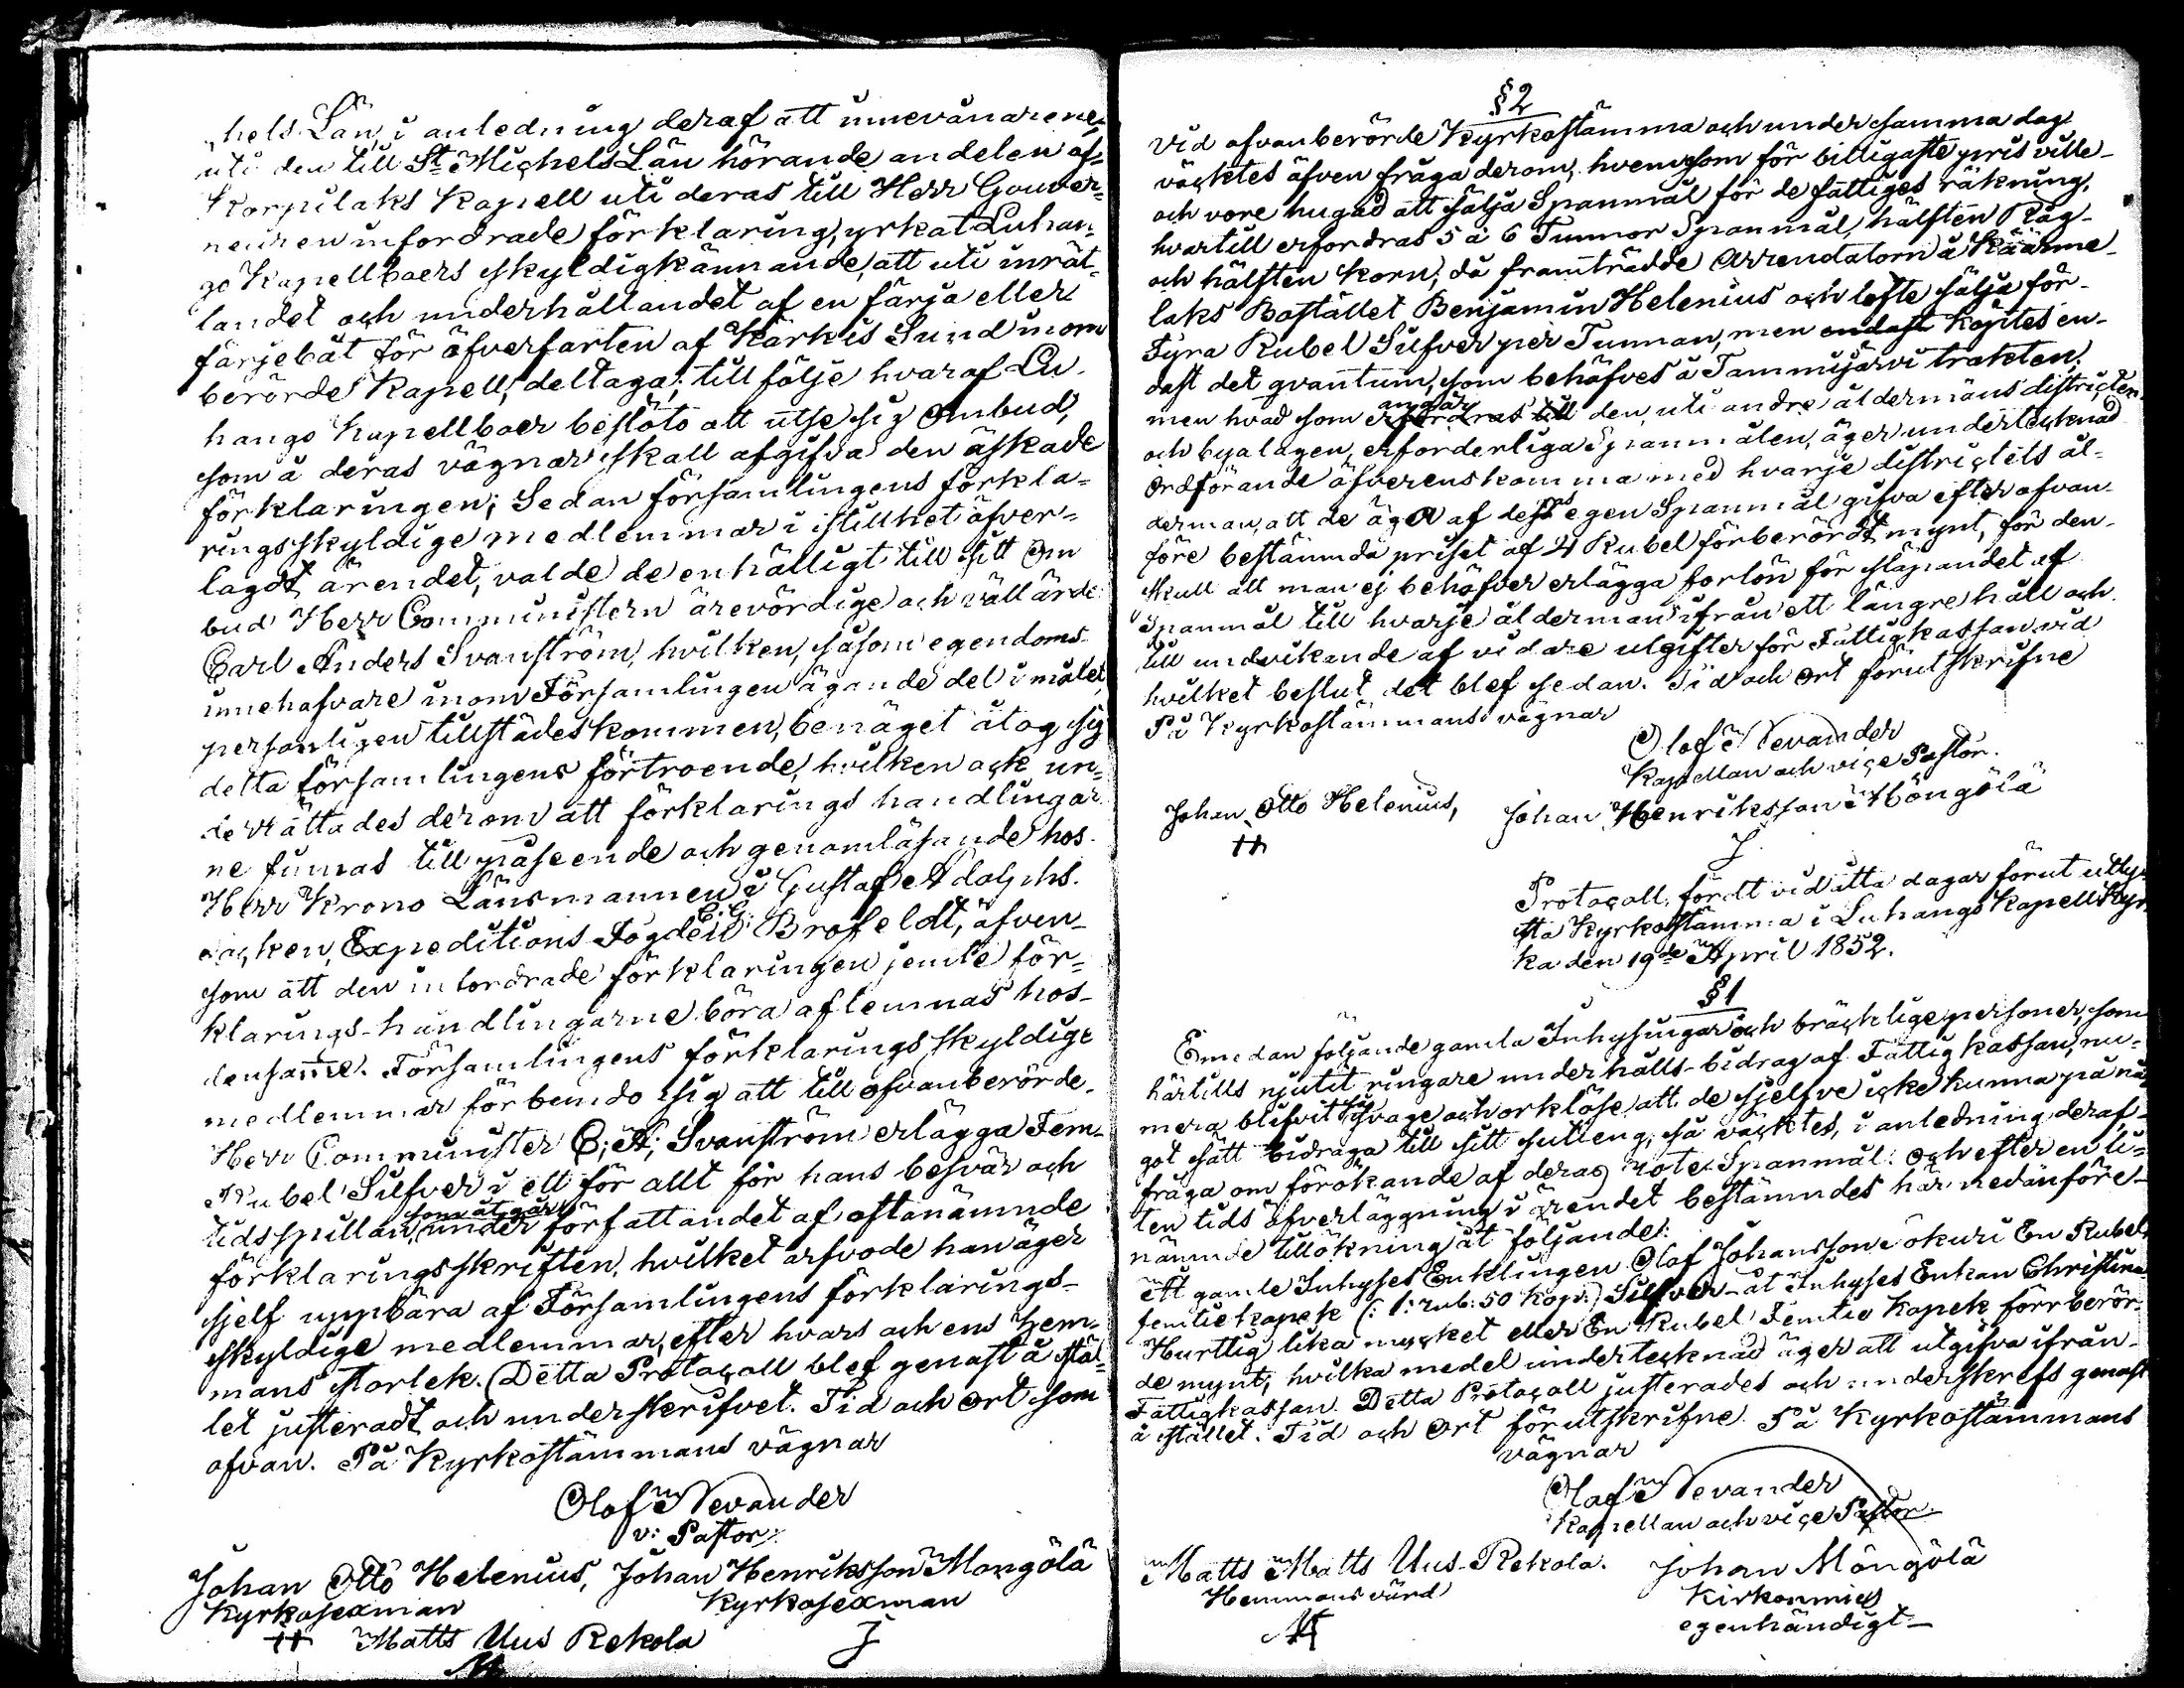 hels Län, i anledning deraf att innevånarene,
uti den till St Michels Län hörande andelen af
Korpilaks Kapell uti deras till Herr Gouver-
neuren infordrade förklaring, yrkat Luhan-
go Kapellboers skyldigkännande, att uti inrät-
landet och underhållandet af en färja eller
färjebåt för öfverfarten af Kärkis Sund inom
berörde Kapell, deltaga; till följe hvaraf Lu-
hango Kapellboer beslöto att utse sig Ombud,
som å deras vägnar skall afgifva den äskade
förklaringen; Sedan församlingens förkla-
ringsskyldige medlemmar i stillhet öfver-
lagdt ärendet, valde de enhälligt till sitt Om
bud Herr Comministern ärevördige och vällärde
Carl Anders Svanström, hvilken, såsom egendoms-
innehafvare inom Församlingen ägande del i målet,
personligen tillstädeskommen, benäget åtog sig
detta församlingens förtroende, hvilken ock un-
derrättades derom att förklarings handlingar
ne finnas till påseende och genomläsande hos
Herr Krono Länsmannen i Gustaf Adolphs
socken, Expeditions Fogden C. G. Brofeldt, äfven-
som att den infordrade förklaringen jemte för-
klarings-handlingarne böra aflemnas hos
densamme. Församlingens förklaringsskyldige
medlemmar förbundo sig att till ofvanberörde
Herr Comminister C; A; Svanström erlägga Fem
Rubel Silfver i ett för allt för hans besvär och
tidsspillan, som åtgår under författandet af oftanämnde
förklaringsskriften, hvilket arfvode han äger
sjelf uppbära af Församlingens förklarings-
skyldige medlemmar, efter hvars och ens hem-
mans storlek. Detta Protocoll blef genast å stäl-
let justeradt och underskrifvet. Tid och Ort som
ofvan. På Kyrkostämmans vägnar
Olof Nevander
v: Pastor.
Johan Otto Helenius, Johan Henriksson Mongölä
Kyrkosexman Kyrkosexman
Matts Uus Rekola
§ 2
Vid ofvanberörde Kyrkostämma och under samma dag
väcktes äfven fråga derom, hvem som för billigaste pris ville
och vore hugad att sälja Spanmål för de fattiges räkning,
hvartill erfordras 5 à 6 Tunnor Spanmål, hälften Råg
och hälften Korn; då framträdde Arrendatorn å Käärme-
laks Bostället Benjamin Helenius och lofte sälja för
Fyra Rubel Silfver per Tunnan, men endast köptes en-
dast det qvantum, som behöfves å Tammijärvi trakten,
men hvad som angår erfordras till den uti andre åldermans districten
och byalagen, erforderliga Spanmålen, äger undertecknad
Ordförande öfverenskomma med hvarje districtets ål-
derman, att de äga af deras egen Spanmål gifva efter ofvan-
före bestämda priset af 4 Rubel förberördt mynt, för den-
skull att man ej behöfver erlägga forlön för släpandet af
Spanmål till hvarje ålderman ifrån ett längre håll och
till undvikande af vidare utgifter för Fattigkassan, vid
hvilket beslut det blef sedan. Tid och Ort förutskrifne
På Kyrkostämmans vägnar
Olof Nevander
Kapellan och vice Pastor.
Johan Otto Helenius, Johan Henriksson Möngölä
Protocoll, fördt vid åtta dagar förut utly-
sta Kyrkostämma i Luhango Kapell Kyr-
ka den 19de April 1852.
§ 1
Emedan följande gamla Inhysingar och bräcklige personer, som
härtills njutit ringare underhålls-bidrag af Fattigkassan, nu-
mera blifvit så svage och orklöse, att de sjelfve icke kunna på nå-
got sätt bidraga till sitt sutteng, så väcktes, i anledning deraf,
fråga om förökande af deras rote-Spanmål: och efter en li-
ten tids öfverläggning i ärendet bestämdes här nedanföre-
nämnde tillökning åt följande:
Åt gamle Inhyses Enklingen Olof Johansson Okuri En Rubel
femtio kopek (: 1: rub: 50 kop:) Silfver - åt Inhyses Enkan Christina
Hurttig lika mycket eller En Rubel Femtio Kopek förr berör-
de mynt; hvilka medel undertecknad äger att utgifva ifrån
Fattigkassan. Detta Protocoll justerades och underskrefs genast
å stället. Tid och Ort förutskrifne. På Kyrkostämmans
vägnar
Olof Nevander
Kapellan och vice Pastor
Matts Matts Uus-Rekola. Johan Möngölä
Hemmansvärd Kirkonmies
egenhändigt